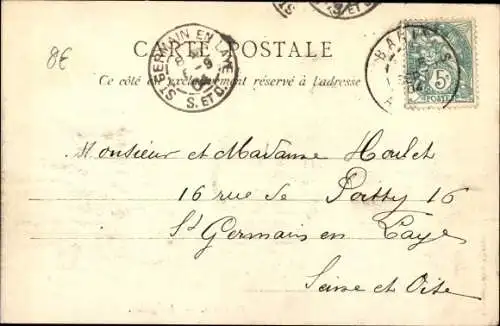 8€
CARTE POSTALE
Ce côté est exclusivement réservé à l'adresse
ST GERMAIN EN LAYE
S. ET O.
5c
POSTES
Monsieur et Madame Houlet
16 rue de Poissy 16
St Germain en Laye
Seine et Oise